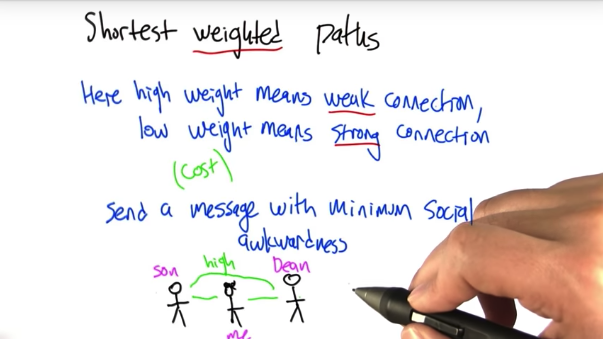 Shortest weighted paths
Here high weight means weak connection,
low weight means strong connection
(cost)
Send a message with minimum social
awkwardness
high
son Dean
me